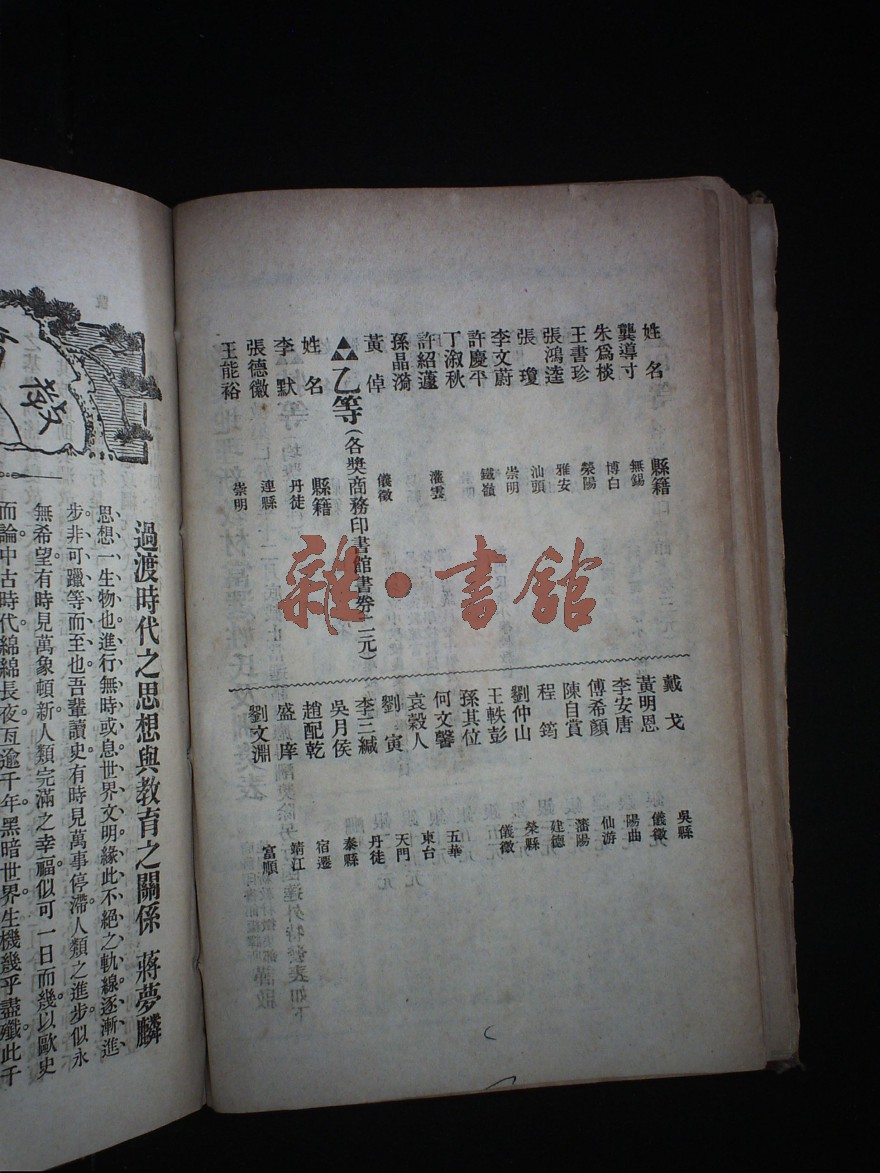 姓名 縣籍
龔導寸 無錫
朱爲棪 博白
王書珍 滎陽
張鴻逵 雅安
張瓊 汕頭
李文蔚 崇明
許慶平 鐵嶺
丁淑秋
許紹蘧 灌雲
孫晶漪
黃倬 儀徵
乙等(各奬商務印書館書券二元)
姓名 縣籍
李默 丹徒
張德徽 連縣
王能裕 崇明
戴戈 吳縣
黃明恩 儀徵
李安唐 陽曲
傅希顏 仙游
陳自賞 瀋陽
程筠 建德
劉仲山 榮縣
王軼彭 儀徵
孫其位
何文馨 五華
袁穀人 東台
劉寅 天門
李三緘 丹徒
吳月侯 泰縣
趙配乾 宿遷
盛庠 靖江
劉文淵 富順
雜·書館
教
過渡時代之思想與教育之關係 蔣夢麟
思想一生物也進行無時或息世界文明緣此不絕之軌線逐漸進
步非可躐等而至也吾輩讀史有時見萬事停滯人類之進步似永
無希望有時見萬象頓新人類完滿之幸福似可一日而幾以歐史
而論中古時代綿綿長夜亙逾千年黑暗世界生機幾乎盡殲此千